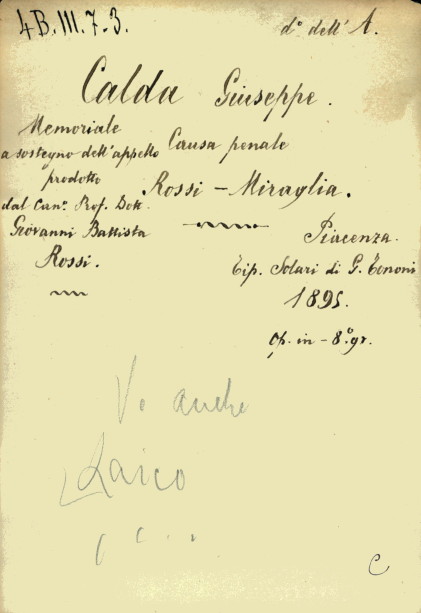 4B.III.7.3.
d° dell'A.
Calda Giuseppe.
Memoriale
a sostegno dell'appello
prodotto
dal Can.° Prof. Dott.
Giovanni Battista
Rossi.
Causa penale
Rossi - Miraglia.
Piacenza.
Tip. Solari di G. Tononi
1895.
op. in - 8.° gr.
V. anche
C